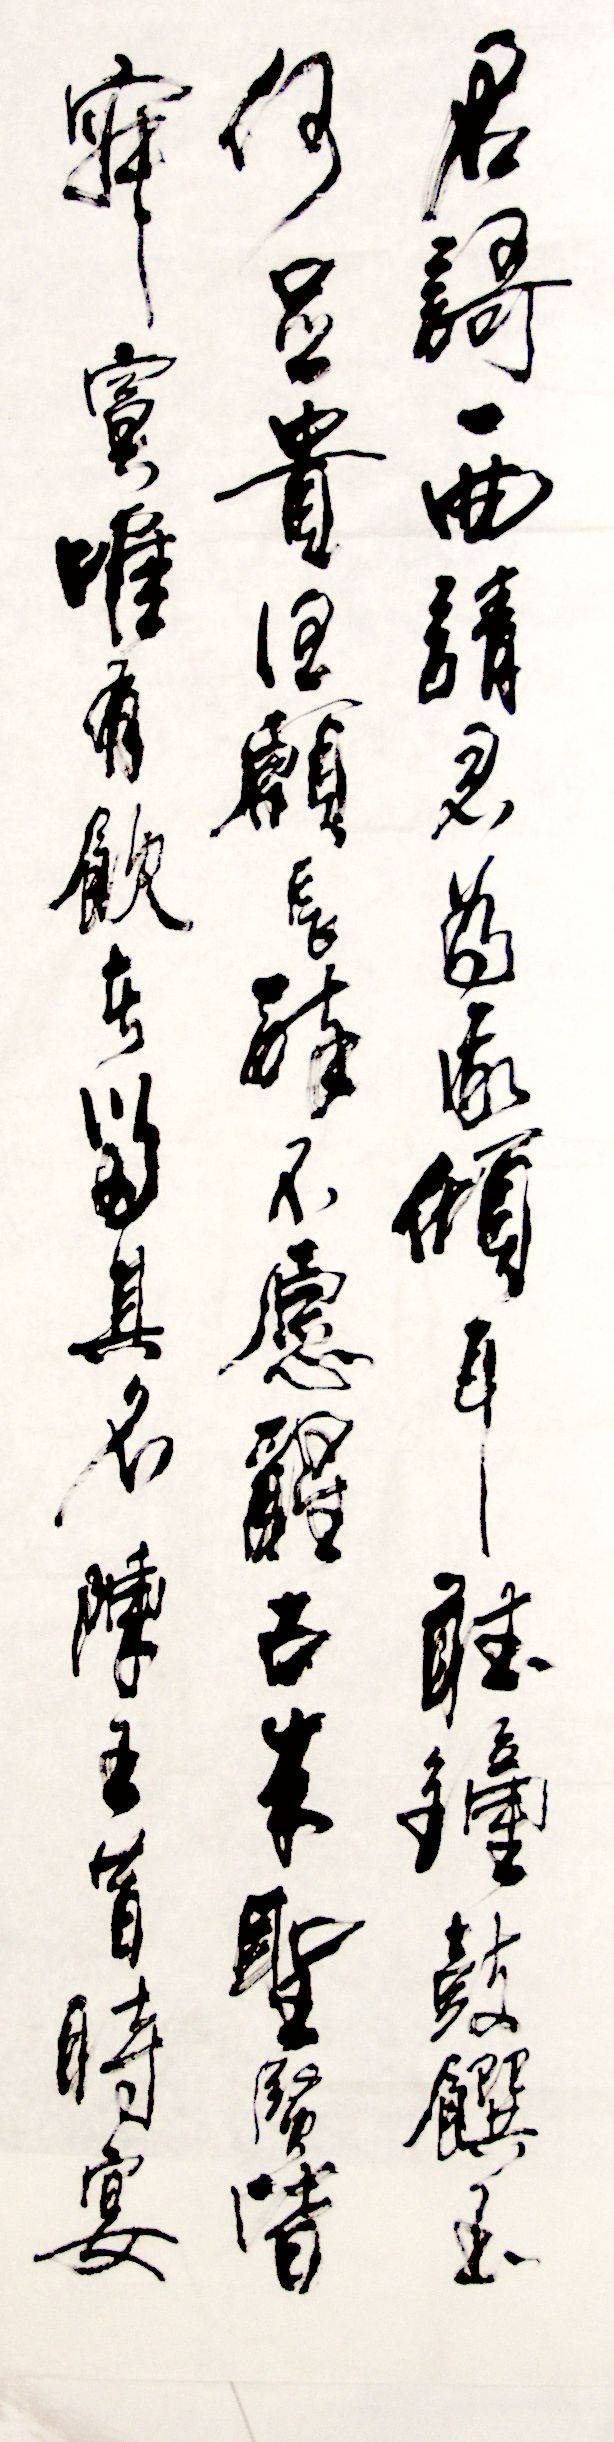 君謌一曲請君為我傾耳聽鐘鼓饌玉
何足貴但願長醉不愿醒古來聖賢皆
寂寞唯有飲者留其名陳王昔時宴